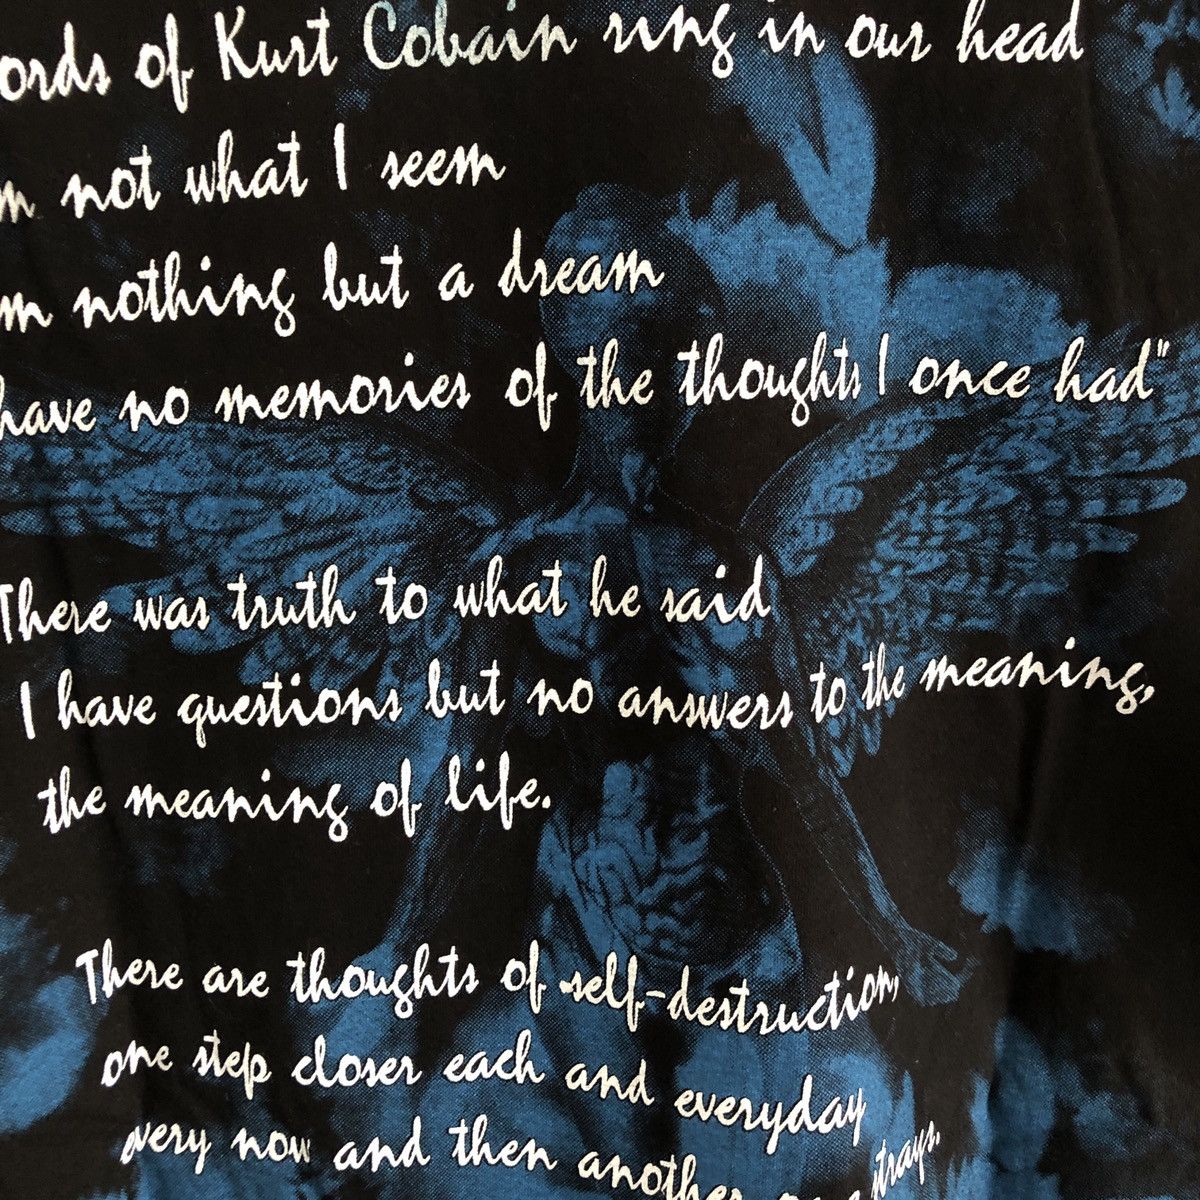 ords of Kurt Cobain ring in our head
m not what I seem
m nothing but a dream
have no memories of the thoughts I once had"
There was truth to what he said
I have questions but no answers to the meaning,
the meaning of life.
There are thoughts of self-destruction,
one step closer each and everyday
every now and then another strays.